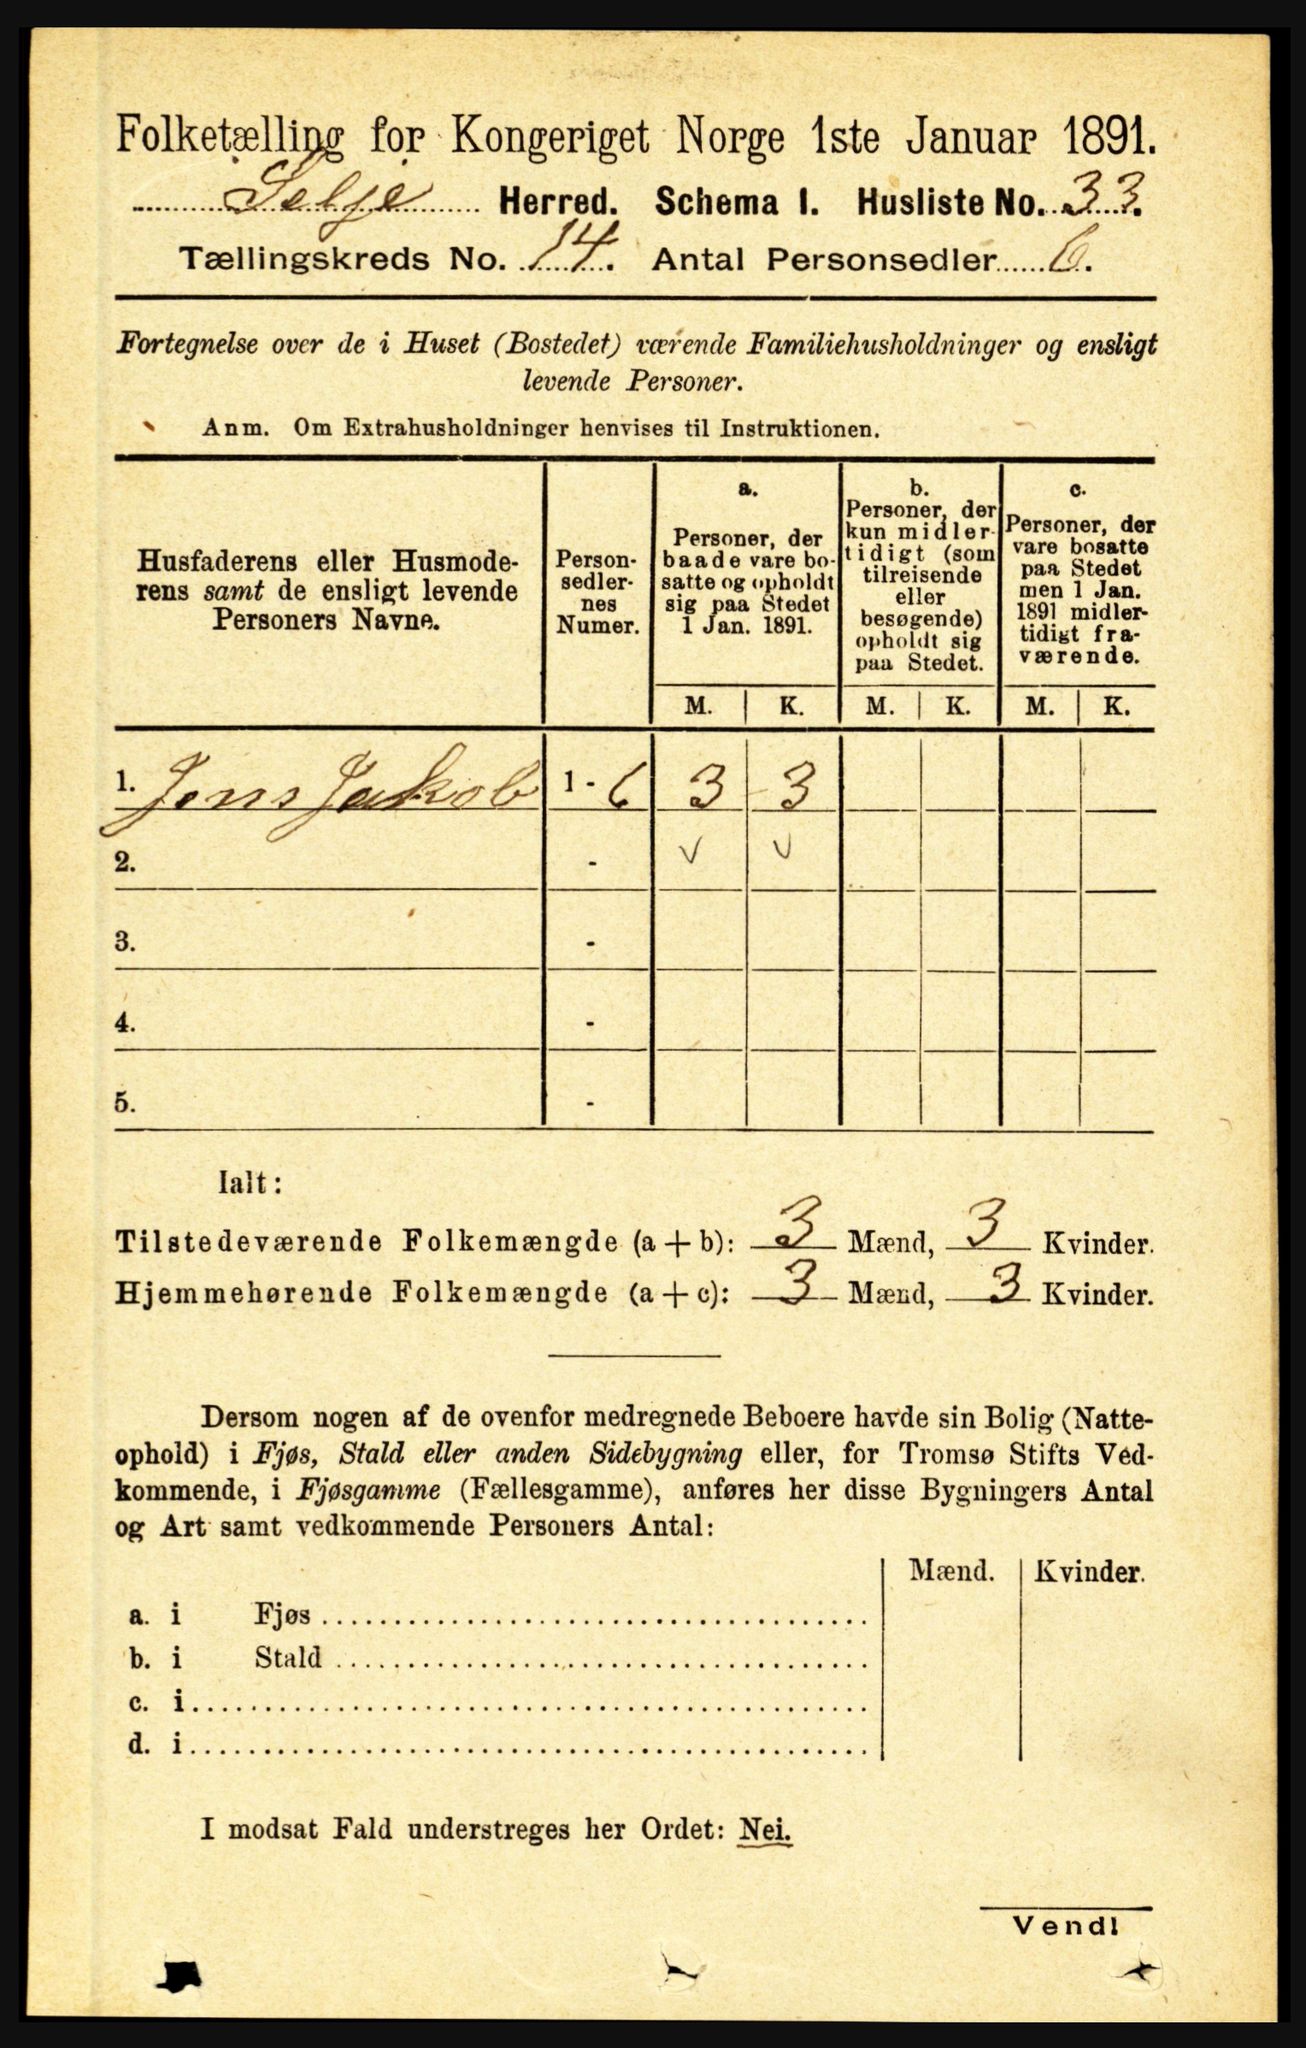 Folketælling for Kongeriget Norge 1ste Januar 1891.
Selje Herred. Schema I. Husliste No. 33.
Tællingskreds No. 14. Antal Personsedler 6.
Fortegnelse over de i Huset (Bostedet) værende Familiehusholdninger og ensligt
levende Personer.
Anm. Om Extrahusholdninger henvises til Instruktionen.
Husfaderens eller Husmode-
rens samt de ensligt levende
Personers Navne.
Person-
sedler-
nes
Numer.
a.
Personer, der
baade vare bo-
satte og opholdt
sig paa Stedet
1 Jan. 1891.
b.
Personer, der
kun midler-
tidigt (som
tilreisende
eller
besøgende)
opholdt sig
paa Stedet.
c.
Personer, der
vare bosatte
paa Stedet
men 1 Jan.
1891 midler-
tidigt fra-
værende.
M. K. M. K. M. K.
1. Jens Jakob 1 - 6 3 3
2. - v v
3. -
4. -
5. -
Ialt:
Tilstedeværende Folkemængde (a + b): 3 Mænd, 3 Kvinder.
Hjemmehørende Folkemængde (a + c): 3 Mænd, 3 Kvinder.
Dersom nogen af de ovenfor medregnede Beboere havde sin Bolig (Natte-
ophold) i Fjøs, Stald eller anden Sidebygning eller, for Tromsø Stifts Ved-
kommende, i Fjøsgamme (Fællesgamme), anføres her disse Bygningers Antal
og Art samt vedkommende Personers Antal:
Mænd. Kvinder.
a. i Fjøs
b. i Stald
c. i
d. i
I modsat Fald understreges her Ordet: Nei.
Vend!